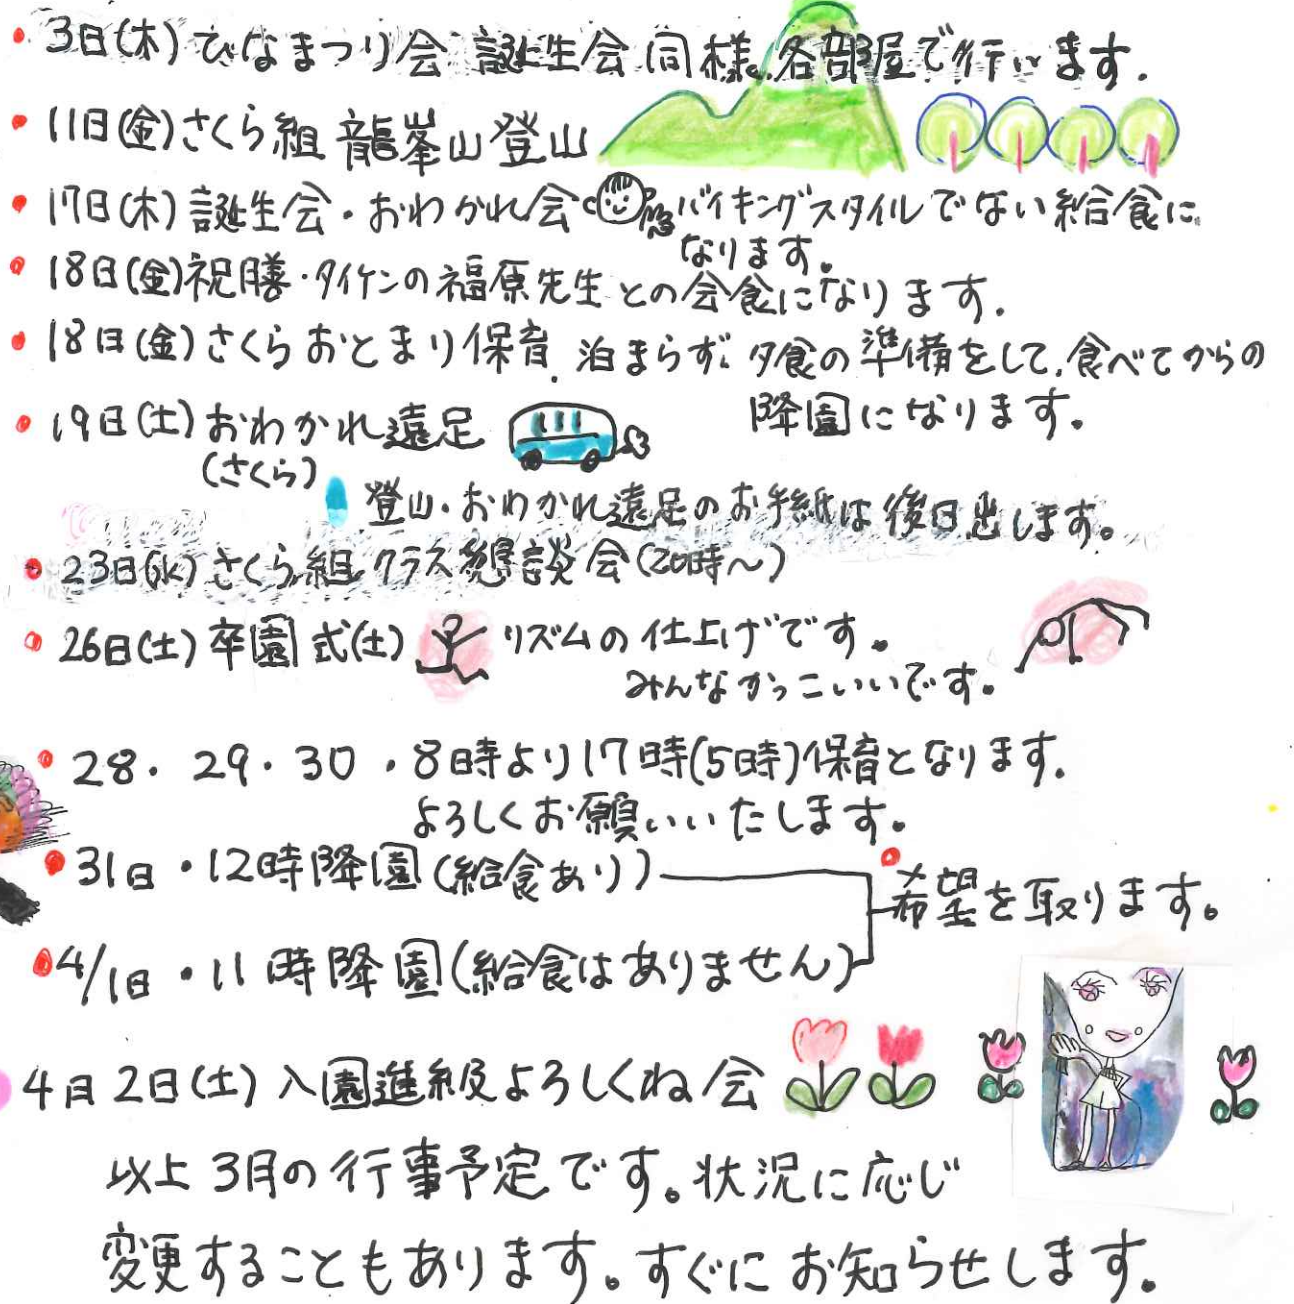 ・3日(木)ひなまつり会 誕生会同様、各部屋で行います.
・11日(金)さくら組 龍峯山登山
・17日(木)誕生会・おわかれ会 バイキングスタイルでない給食に
なります。
・18日(金)祝膳・タイケンの福原先生との会食になります.
・18日(金)さくらおとまり保育. 泊まらず、夕食の準備をして、食べてからの
降園になります。
・19日(土)おわかれ遠足
(さくら)
登山・おわかれ遠足のお手紙は後日出します。
・23日(水)さくら組クラス懇談会(20時〜)
・26日(土)卒園式(土) リズムの仕上げです。
みんなかっこいいです。
・28・29・30・8時より17時(5時)保育となります.
よろしくお願いいたします。
・31日・12時降園(給食あり)
・希望を取ります。
・4/1日・11時降園(給食はありません)
4月2日(土)入園進級よろしくね会
以上3月の行事予定です。状況に応じ
変更することもあります。すぐにお知らせします。